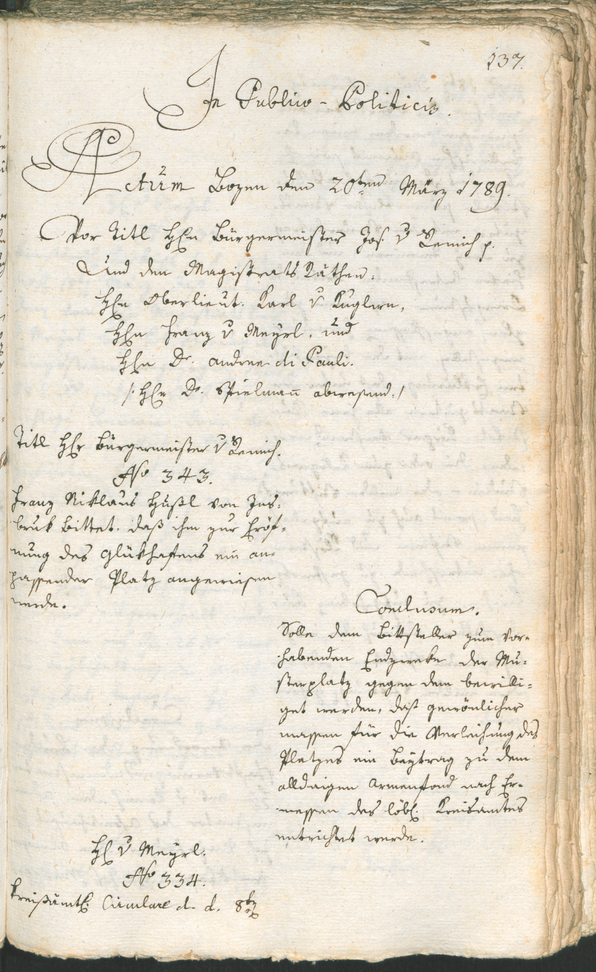 137.
In Publico-Politicis.
Actum Bozen den 20ten März 1789.
Vor Titl Hhn Bürgermeister Jos. v Remich p.
Und den Magistrats Räthen.
Hhn Oberlieut. Karl v Kuglern,
Hhn Franz v Meyrl. und
Hhn Dr. Andree di Pauli.
/: Hhr Dr. Spielmann abwesend. /
Titl Hhr Bürgermeister v Remich.
No 343.
Franz Niklaus Hußl von Ins-
bruk bittet. daß ihm zur Eröf-
nung des Glükhafens ein an-
passender Platz angewiesen
werde.
Conclusum.
Solle dem Bittsteller zum vor-
habenden Endzweke der Mu-
sterplatz gegen dem bewilli-
get werden, daß gewönlicher
massen für die Verleihung des
Platzes ein Beytrag zu dem
alldaigen Armenfond nach Er-
messen des löbl. Kreisamtes
entrichtet werde.
H v Meyrl.
No 334.
Kreisämtl. Circulare d. d. 8